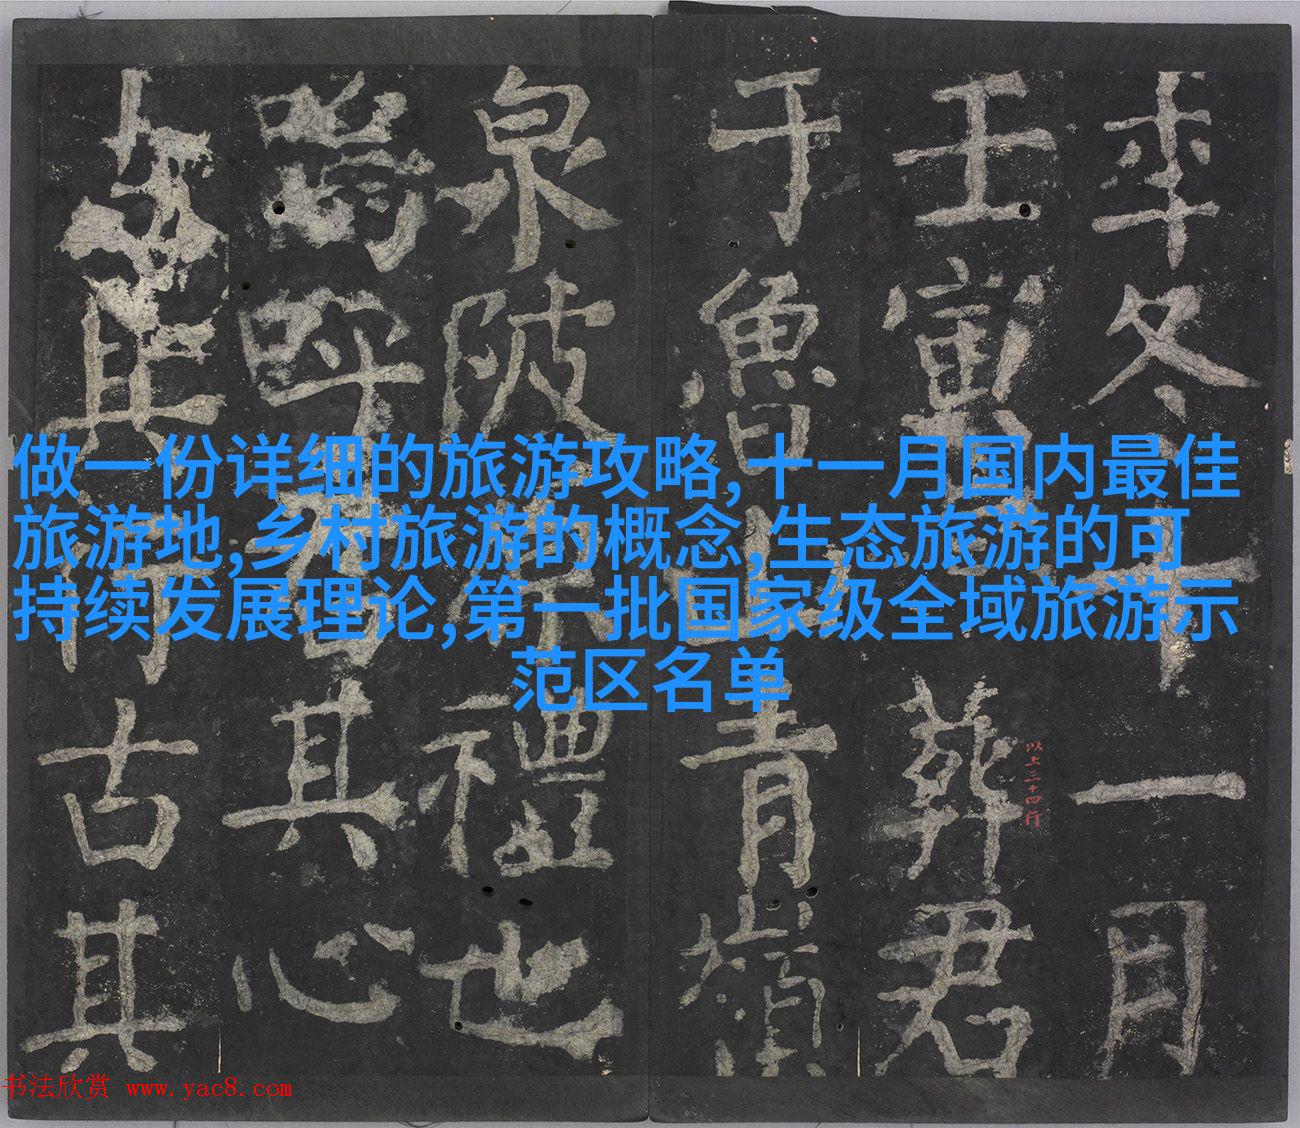 做一份详细的旅游攻略,十一月国内最佳
旅游地,乡村旅游的概念,生态旅游的可
持续发展理论,第一批国家级全域旅游示
范区名单
年冬十一月
壬寅葬君
以上三十四行
于魯山青嶺
泉陂原禮也
嗚呼君其心
古其行古其
书法欣赏 www.yac8.com